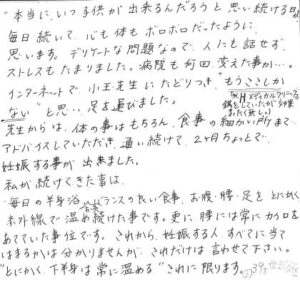 "本当に、いつ子供が出来るんだろうと思い続ける日
毎日続いて、心も体もボロボロだったように
思います。デリケートな問題なので、人にも話せず
ストレスもたまりました。病院も何回変えた事か…。
インターネットで小玉先生にたどりつき"もうここしか
ない"と思い、足を運びました。
メディカルクリニックで
鍼をしていたが効果
先生からは、体の事はもちろん、食事の細かい所まで
アドバイスしていただき、通い続けて、2ヶ月ちょっとで、
妊振する事が出来ました。
私が続けてきた事は、
毎日の半身浴、バランスの良い食事、お腹・腰・足をとにかく
赤外線で温め続けた事です。更に、腰には常にカイロを
あてていた事位です。これから、妊振する人すべてに当て
はまるかは分かりませんが、これだけは言わせて下さい。
"とにかく、下半身は常に温める"これに限ります。
39歳